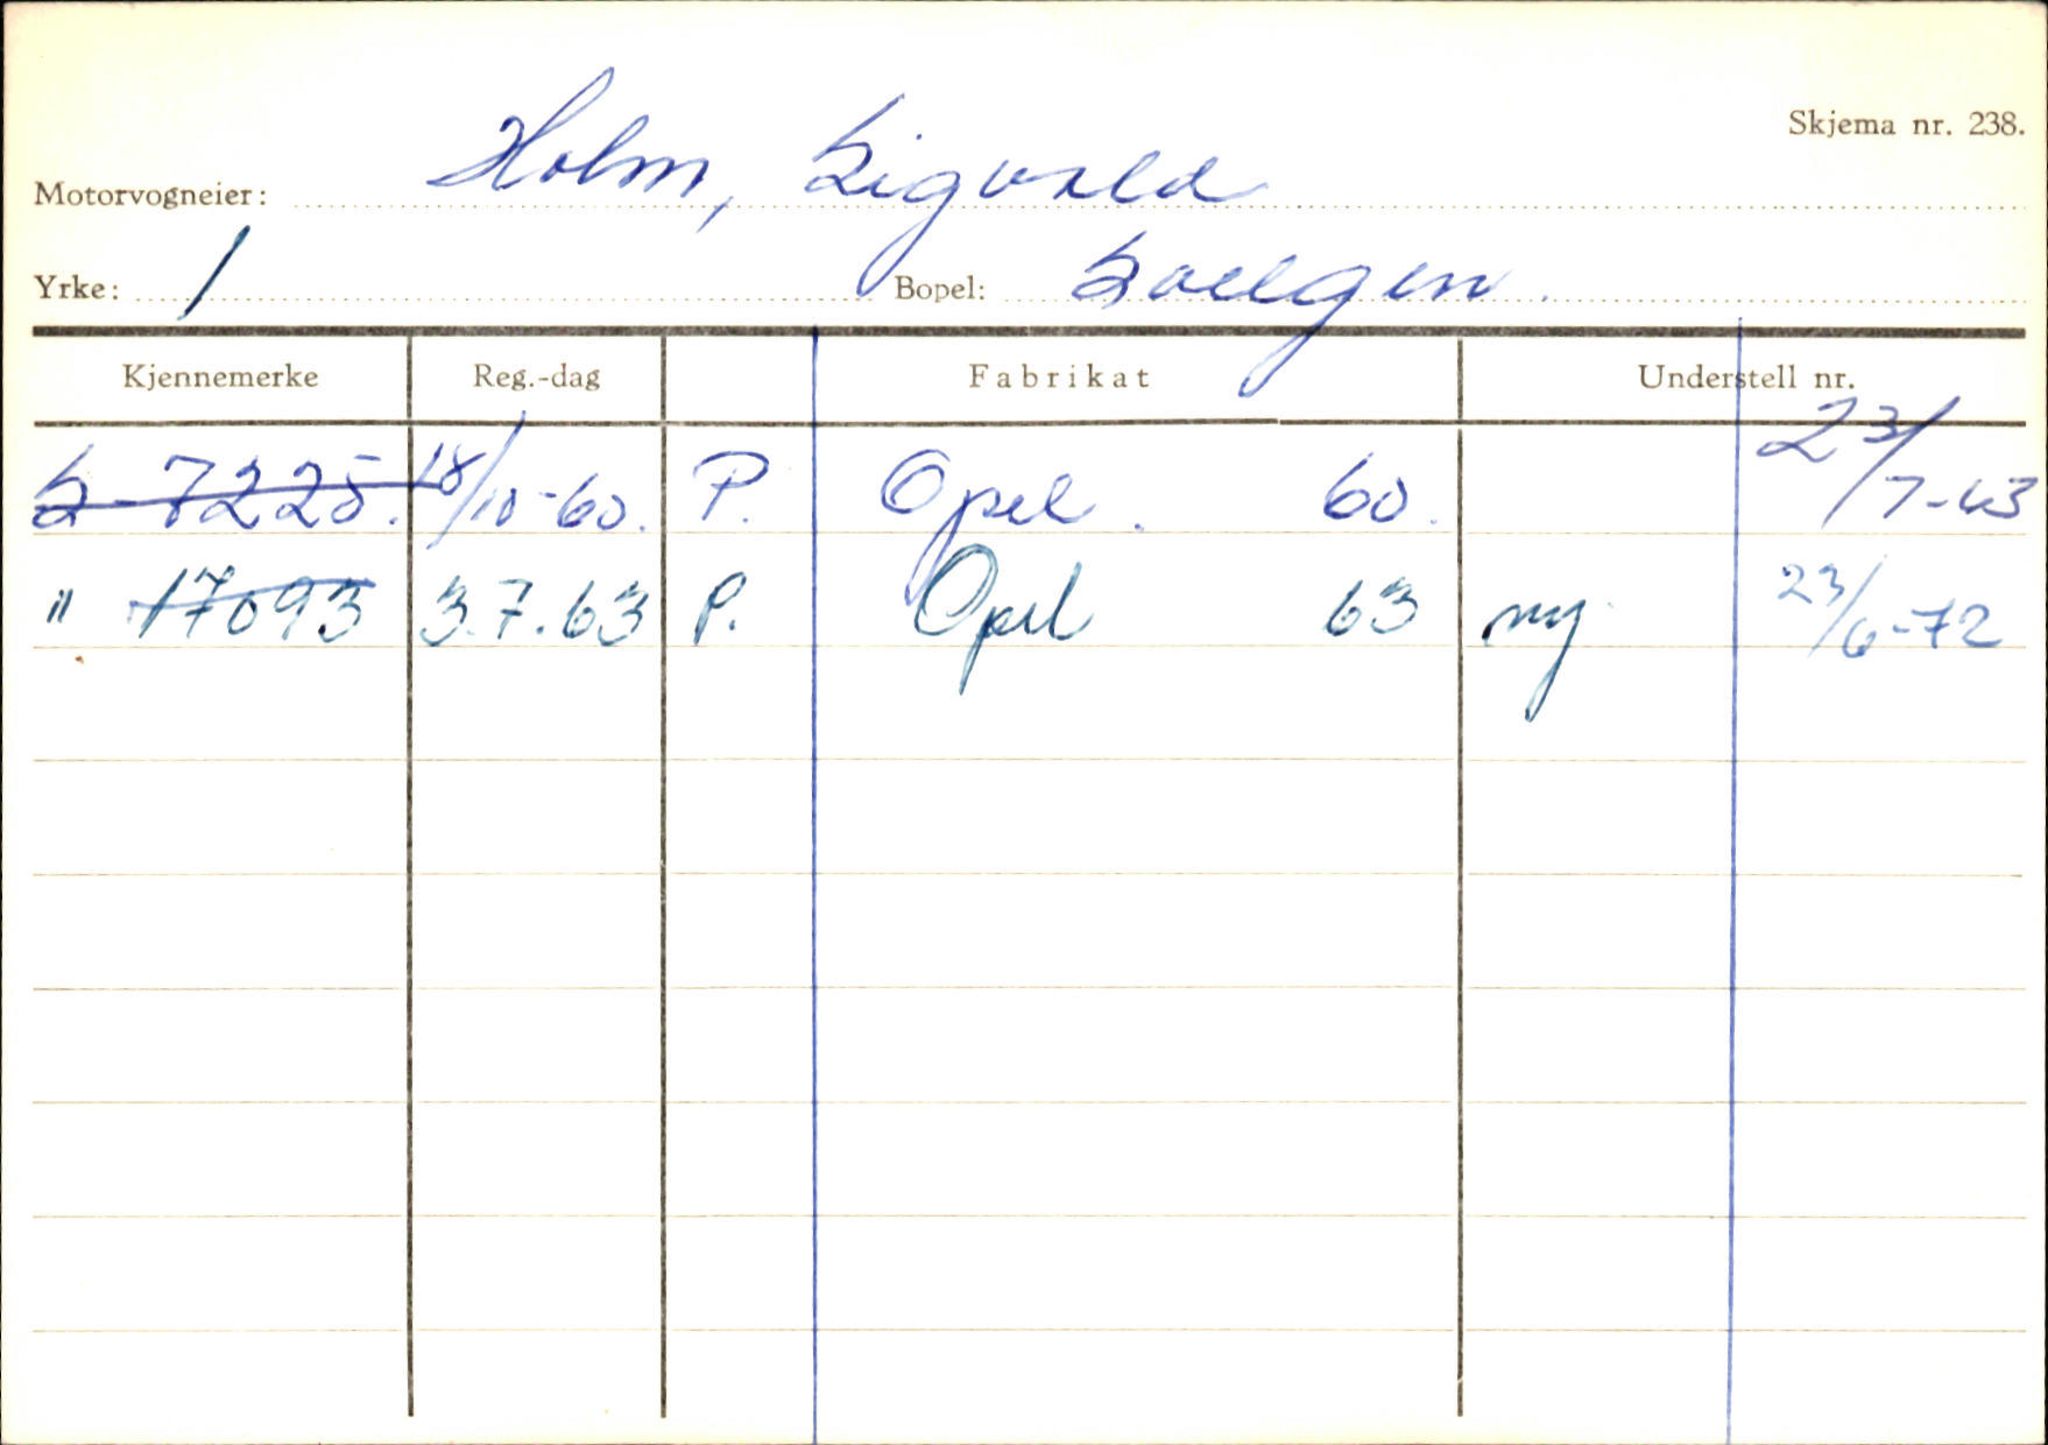 Skjema nr. 238.
Motorvogneier: Holm, Sigvald
Yrke: 1 Bopel: Solgen.
Kjennemerke Reg.-dag Fabrikat Understell nr.
S-7225. 18/10-60. P. Opel. 60. 23/7-63
" 17093 3.7.63 P. Opel 63 ny 23/6-72